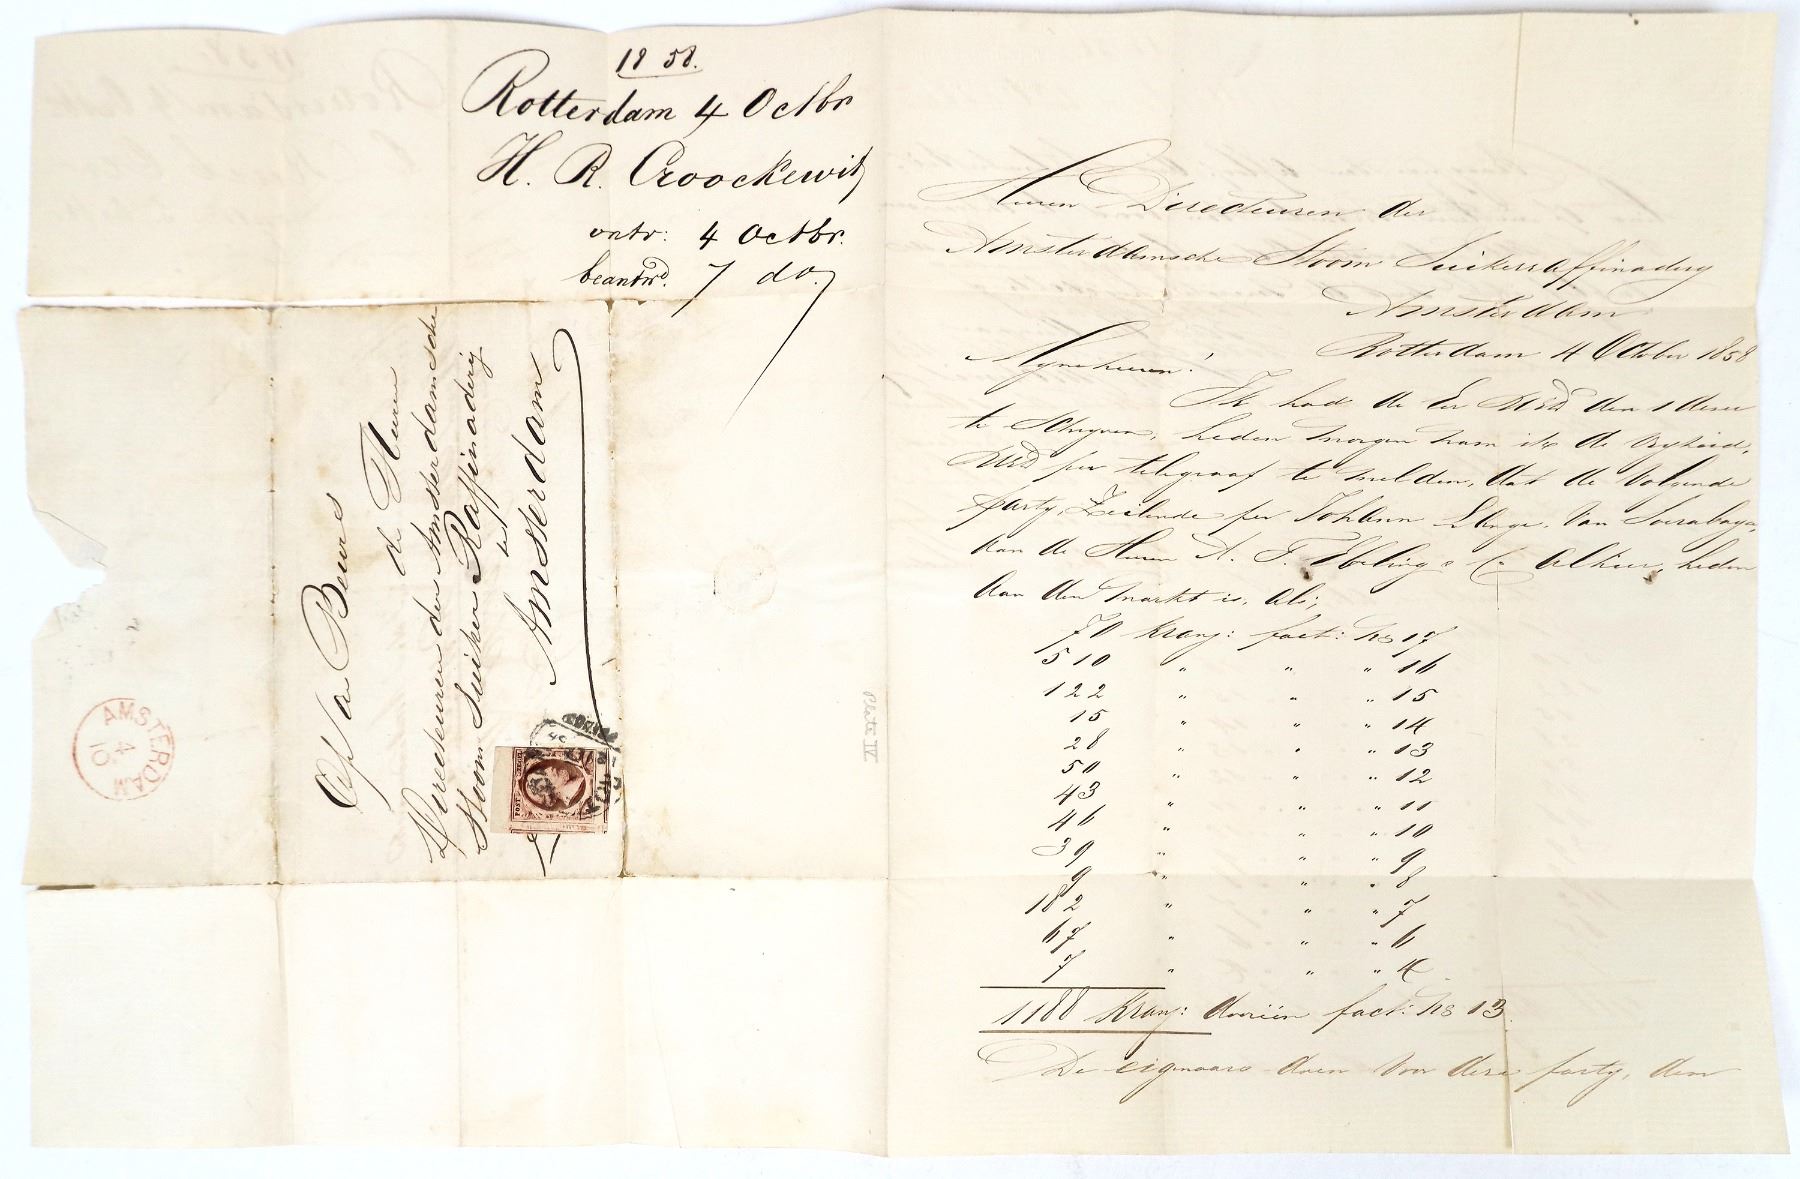 1858.
Rotterdam 4 Octbr
H. R. Croockewit
ontv: 4 Octbr.
beantwd. 7 do.
Op de Beurs
de Heeren
Directeuren der Amsterdamsche
Stoom Suiker Raffinaderij
te
Amsterdam
AMSTERDAM
4
10
POST
Plate IV
Heeren Directeuren der
Amsterdamsche Stoom Suikerraffinadery
Amsterdam
Rotterdam 4 October 1858
Myne heeren!
Ik had de Eer UEd den 1 dezer
te schryven, heden morgen nam ik de vryheid,
UEd per telegraaf te melden, dat de volgende
party, Zeilende per Johann Lange, van Soerabaya,
aan de Heeren A. F. Ebeling & Co. alhier, heden
aan den markt is, als;
70 Kranj: fact: No 17
510 " " " 16
122 " " " 15
15 " " " 14
28 " " " 13
50 " " " 12
43 " " " 11
46 " " " 10
39 " " " 9
9 " " " 8
182 " " " 7
67 " " " 6
7 " " " 4
1188 Kranj: dooréén fact: No 13.
De eigenaars doen voor deze party, den